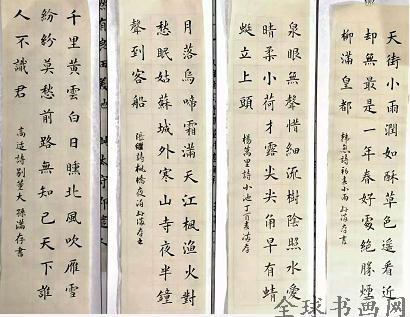 天街小雨潤如酥草色遙看近
却無最是一年春好處絕勝煙
柳滿皇都
韓愈詩初春小雨孫滿存書
泉眼無聲惜細流樹陰照水愛
晴柔小荷才露尖尖角早有蜻
蜓立上頭
楊萬里詩小池丁酉孫滿存
月落烏啼霜滿天江楓漁火對
愁眠姑蘇城外寒山寺夜半鐘
聲到客船
張繼詩楓橋夜泊孫滿存書
千里黃雲白日曛北風吹雁雪
紛紛莫愁前路無知己天下誰
人不識君
高適詩別董大 孫滿存書
全球书画网